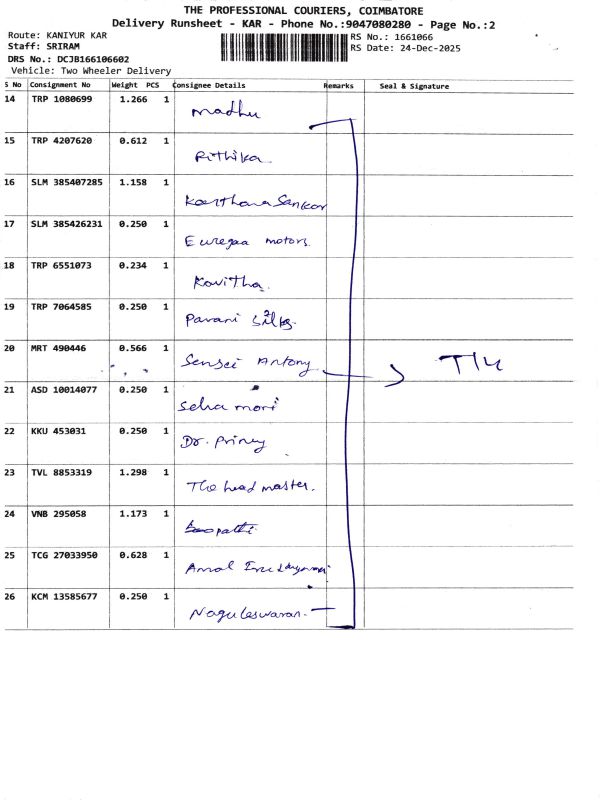 THE PROFESSIONAL COURIERS, COIMBATORE
Delivery Runsheet - KAR - Phone No.:9047080280 - Page No.:2
Route: KANIYUR KAR
Staff: SRIRAM
DRS No.: DCJB166106602
Vehicle: Two Wheeler Delivery
RS No.: 1661066
RS Date: 24-Dec-2025
S No Consignment No Weight PCS Consignee Details Remarks Seal & Signature
14 TRP 1080699 1.266 1 Madhu
15 TRP 4207620 0.612 1 Rithika
16 SLM 385407285 1.158 1 Sankar
17 SLM 385426231 0.250 1 Euregaa motors
18 TRP 6551073 0.234 1 Kavitha.
19 TRP 7064585 0.250 1 Pavani Silks.
20 MRT 490446 0.566 1 Sensei Antony
21 ASD 10014077 0.250 1 Seha mori
22 KKU 453031 0.250 1 Dr.
23 TVL 8853319 1.298 1 The head master.
24 VNB 295058 1.173 1
25 TCG 27033950 0.628 1 Amal
26 KCM 13585677 0.250 1 Naguleswaran.